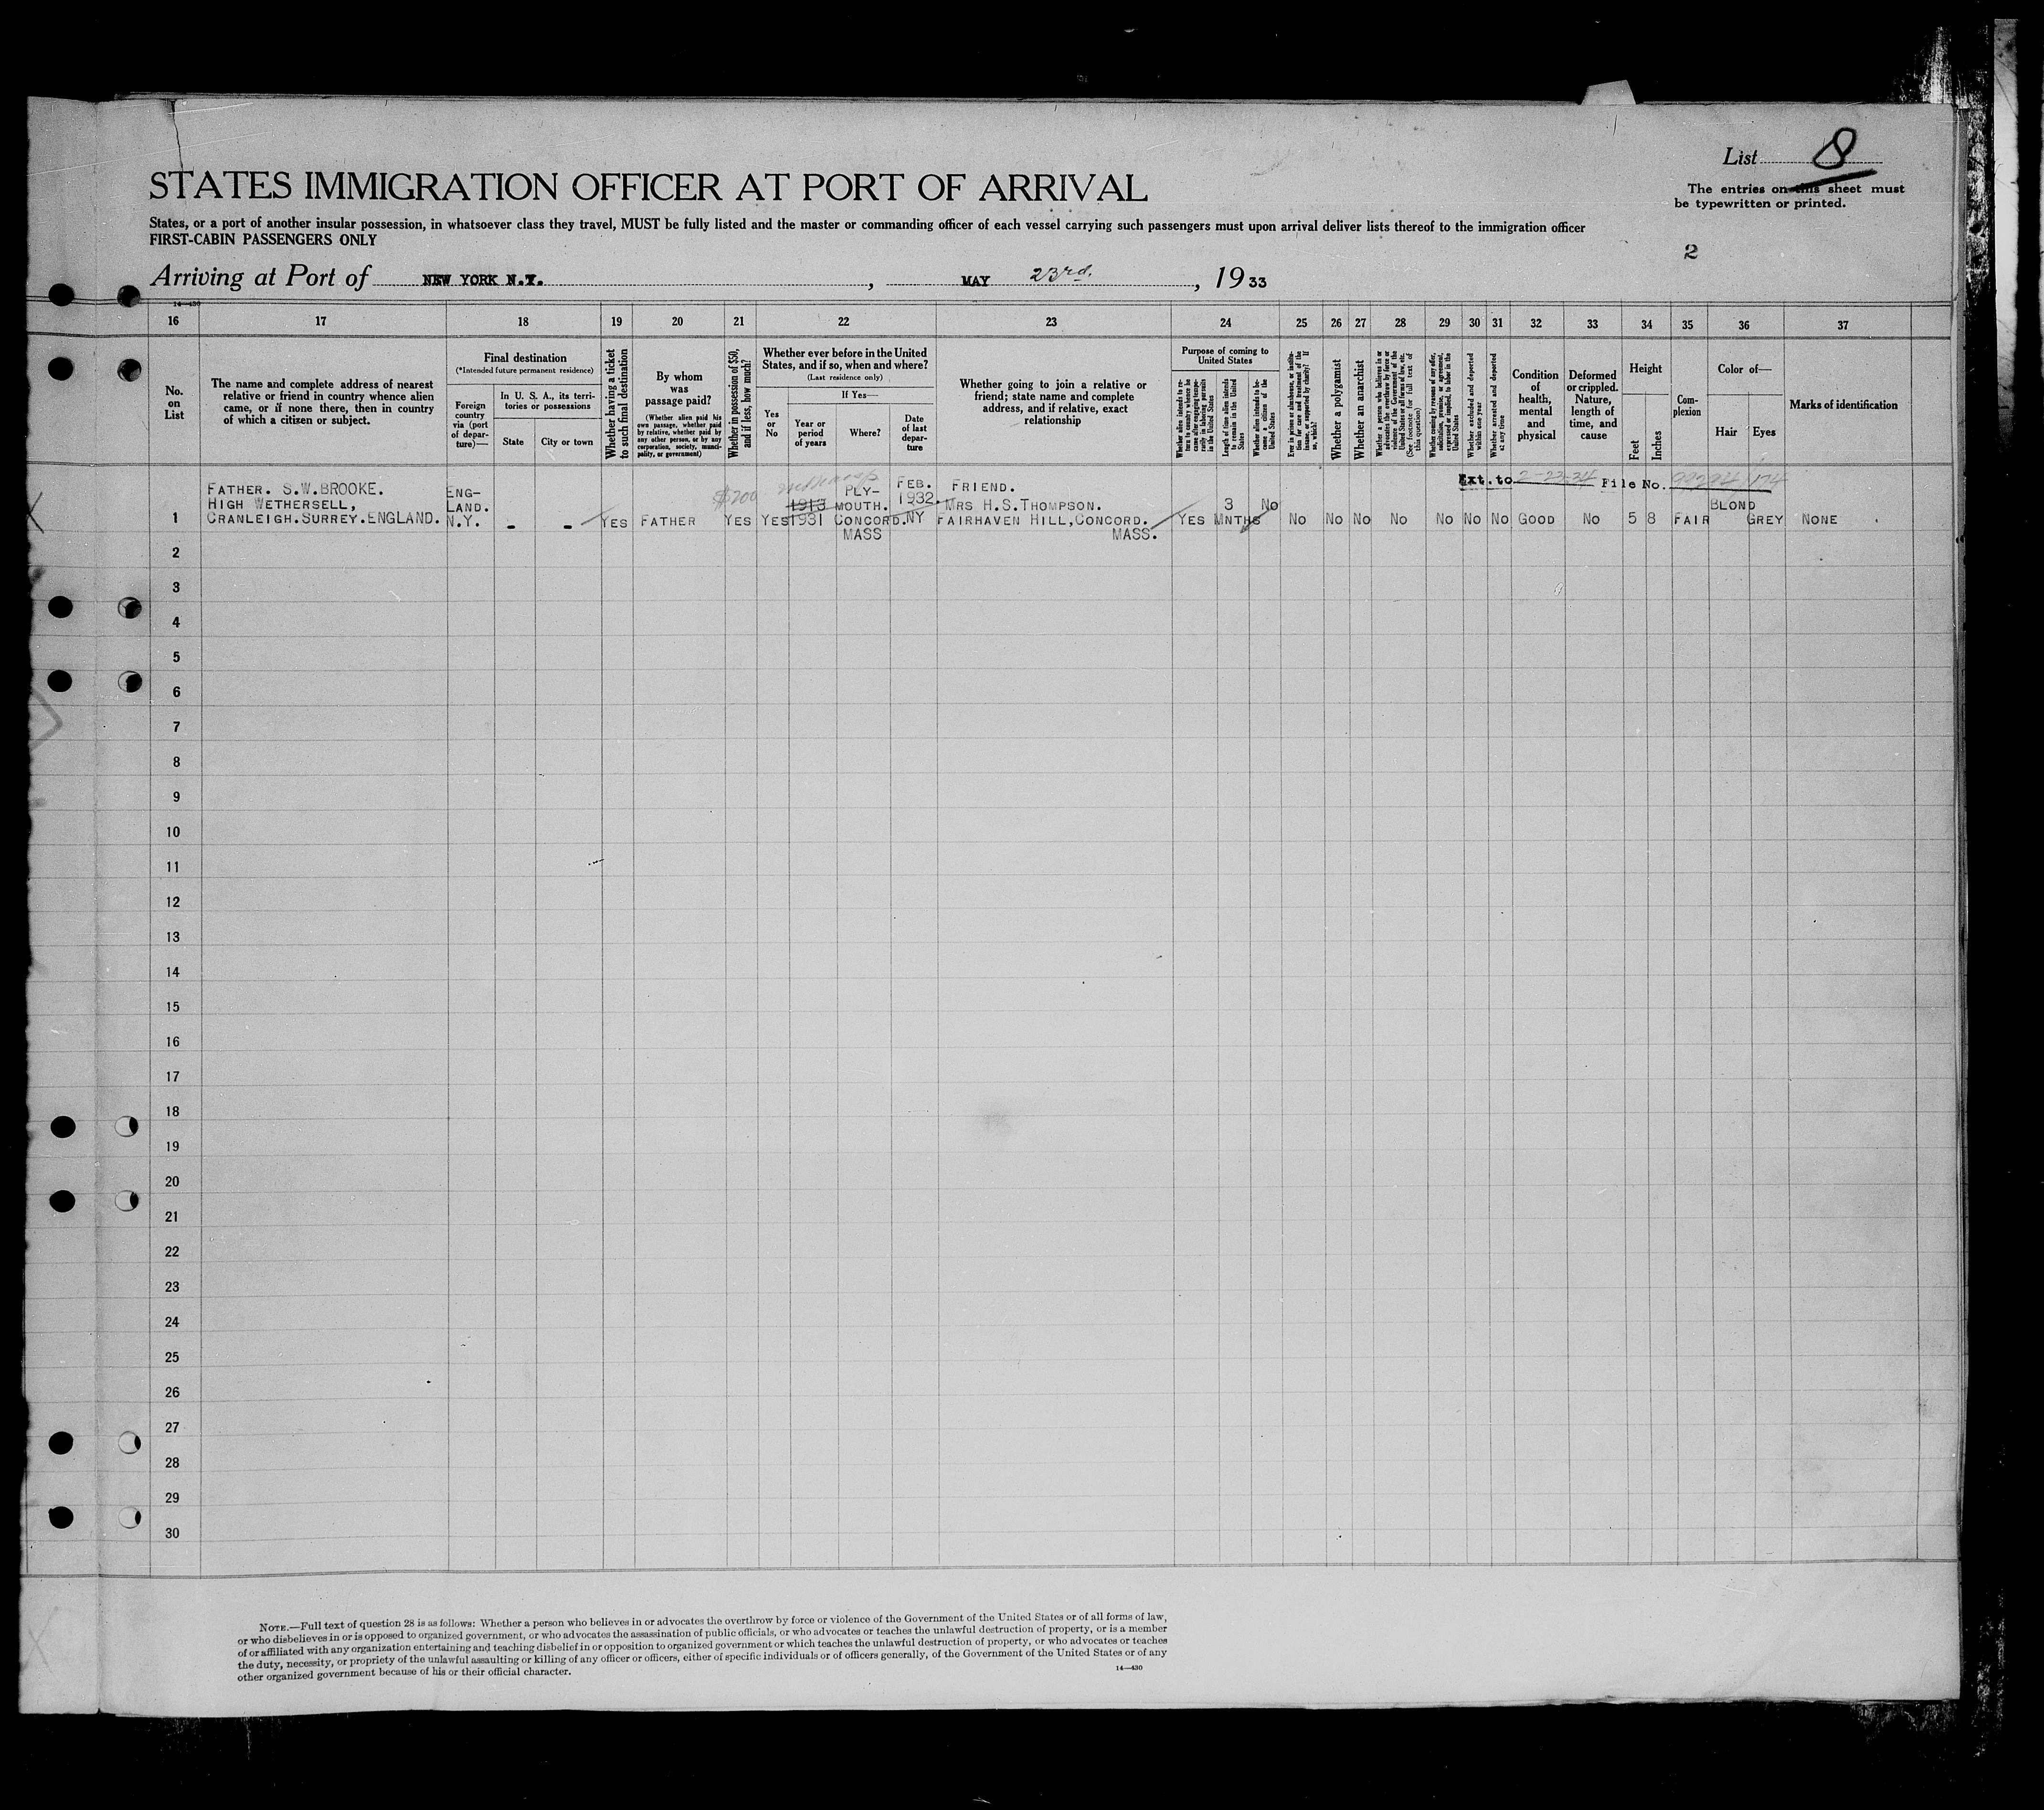 List 8
STATES IMMIGRATION OFFICER AT PORT OF ARRIVAL
The entries on this sheet must
be typewritten or printed.
States, or a port of another insular possession, in whatsoever class they travel, MUST be fully listed and the master or commanding officer of each vessel carrying such passengers must upon arrival deliver lists thereof to the immigration officer
FIRST-CABIN PASSENGERS ONLY
2
Arriving at Port of NEW YORK N.Y. , MAY 23rd. , 1933
14—430
16 17 18 19 20 21 22 23 24 25 26 27 28 29 30 31 32 33 34 35 36 37
No.
on
List
The name and complete address of nearest
relative or friend in country whence alien
came, or if none there, then in country
of which a citizen or subject.
Final destination
(*Intended future permanent residence)
Foreign
country
via (port
of depar-
ture)—
In U. S. A., its terri-
tories or possessions
State
City or town
Whether having a ticket
to such final destination
By whom
was
passage paid?
(Whether alien paid his
own passage, whether paid
by relative, whether paid by
any other person, or by any
corporation, society, munici-
pality, or government)
Whether in possession of $50,
and if less, how much?
Whether ever before in the United
States, and if so, when and where?
(Last residence only)
Yes
or
No
If Yes—
Year or
period
of years
Where?
Date
of last
depar-
ture
Whether going to join a relative or
friend; state name and complete
address, and if relative, exact
relationship
Purpose of coming to
United States
Whether alien intends to re-
turn to country whence he
came after engaging tempo-
rarily in laboring pursuits
in the United States
Length of time alien intends
to remain in the United
States
Whether alien intends to be-
come a citizen of the
United States
Ever in prison or almshouse, or institu-
tion for care and treatment of the
insane, or supported by charity? If
so, which?
Whether a polygamist
Whether an anarchist
Whether a person who believes in or
advocates the overthrow by force or
violence of the Government of the
United States or all forms of law, etc.
(See footnote for full text of
this question)
Whether coming by reason of any offer,
solicitation, promise, or agreement,
expressed or implied, to labor in the
United States
Whether excluded and deported
within one year
Whether arrested and deported
at any time
Condition
of
health,
mental
and
physical
Deformed
or crippled.
Nature,
length of
time, and
cause
Height
Feet
Inches
Com-
plexion
Color of—
Hair
Eyes
Marks of identification
Ext. to 2-23-34 File No. 99294/174
1
FATHER. S.W.BROOKE.
HIGH WETHERSELL,
CRANLEIGH.SURREY.ENGLAND.
ENG-
LAND.
N.Y.
-
-
YES
FATHER
$200
YES
YES
1913
1931
PLY-
MOUTH.
CONCORD.
MASS
FEB.
1932.
NY
FRIEND.
MRS H.S.THOMPSON.
FAIRHAVEN HILL,CONCORD.
MASS.
YES
3
MNTHS
NO
NO
NO
NO
NO
NO
NO
NO
GOOD
NO
5
8
FAIR
BLOND
GREY
NONE
2
3
4
5
6
7
8
9
10
11
12
13
14
15
16
17
18
19
20
21
22
23
24
25
26
27
28
29
30
NOTE.—Full text of question 28 is as follows: Whether a person who believes in or advocates the overthrow by force or violence of the Government of the United States or of all forms of law,
or who disbelieves in or is opposed to organized government, or who advocates the assassination of public officials, or who advocates or teaches the unlawful destruction of property, or is a member
of or affiliated with any organization entertaining and teaching disbelief in or opposition to organized government or which teaches the unlawful destruction of property, or who advocates or teaches
the duty, necessity, or propriety of the unlawful assaulting or killing of any officer or officers, either of specific individuals or of officers generally, of the Government of the United States or of any
other organized government because of his or their official character.
14—430